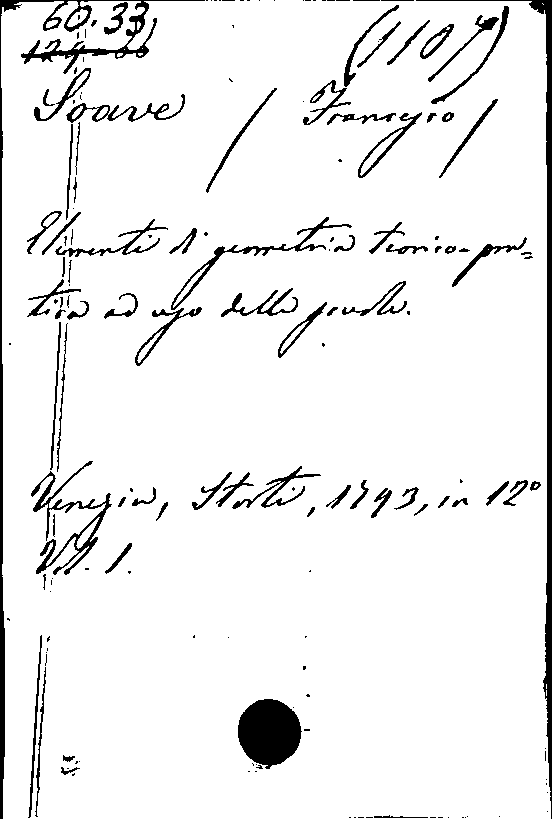 60.33
(1107)
Soave / Francesco /
Elementi di geometria teorico-pra=
tica ad uso delle scuole.
Venezia, Storti, 1793, in 12º
Vol. 1.